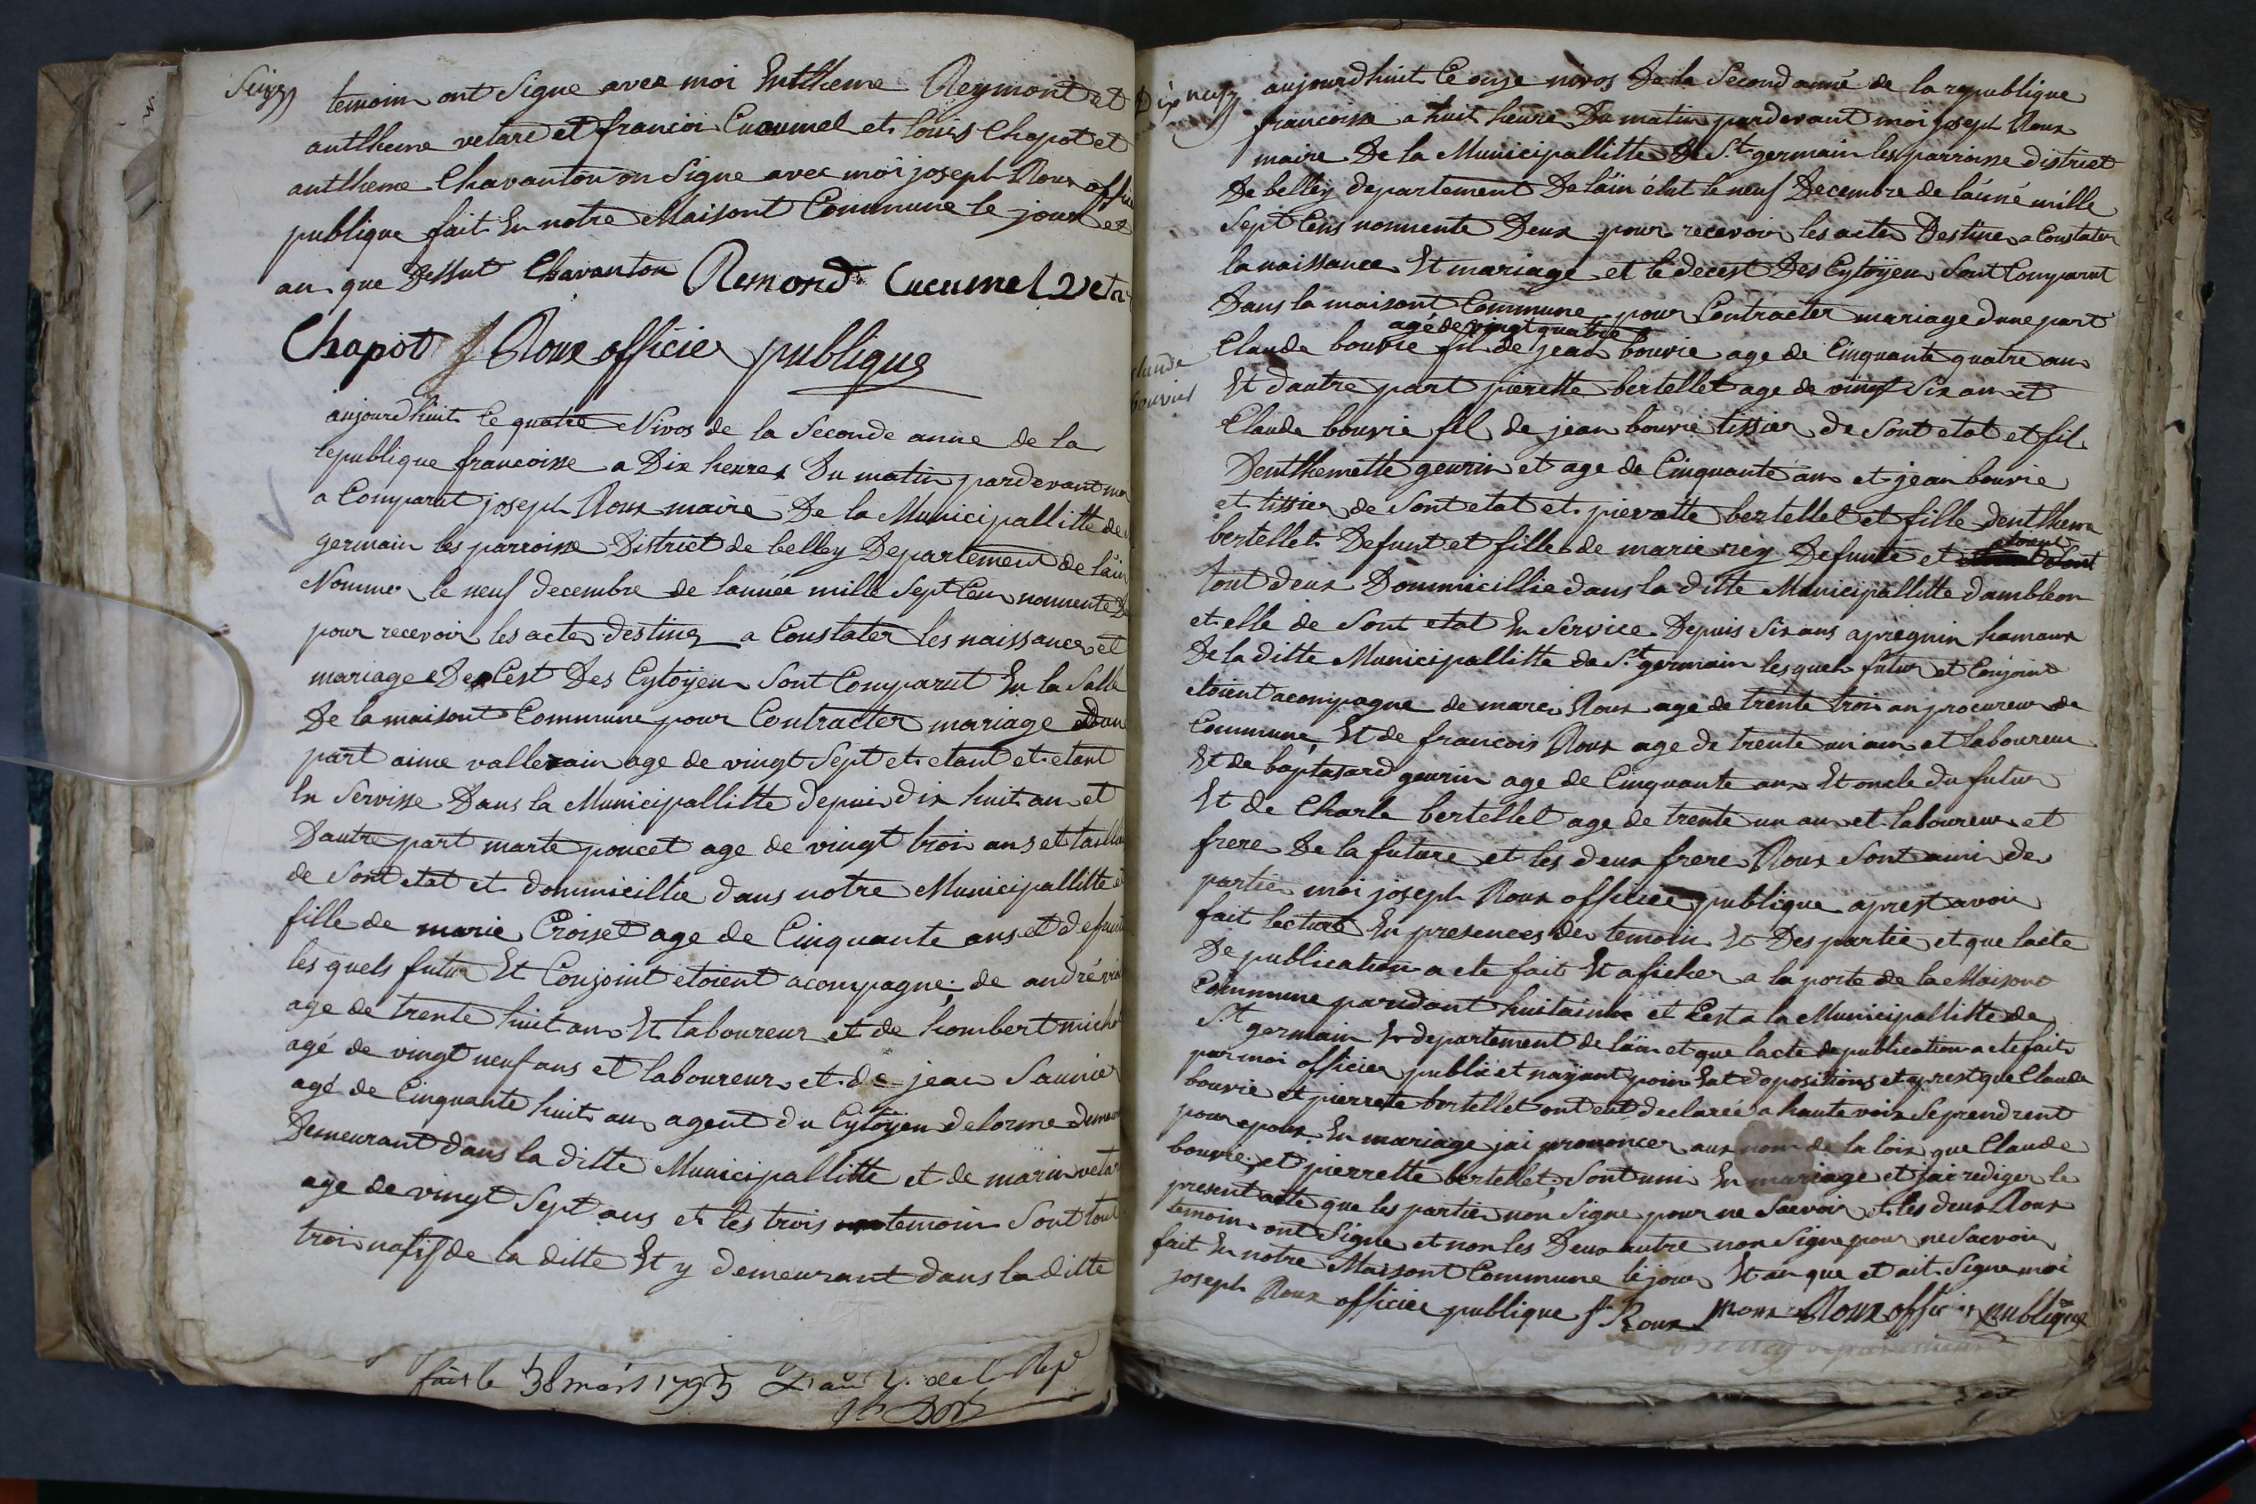 temoin ont Signe avec moi Entheme Reymont et
anttheme vetard et francoi Cucumel et louis Chapot et
anttheme Chavanton on Signe avec moi joseph Roux offici
publique fait En notre Maisont Commune le jour et
an que Dessut Chavanton Remond Cucumel Veta
Chapot J Roux officier publique
aujourdhuit le quatre Nivos de la Seconde annee de la
republique francoisse a Dix heures Du matin pardevant moi
a Comparut joseph Roux maire De la Municipallitte de
germain les parroisse District de belley Departement de lain
Nommer le neuf decembre de lannée mille Sept Cens nonnente De
pour recevoir les acte destinez a Constater les naissance et
mariage Decest Des Cytoyen Sont Comparut En la Salle
De la maisont Commune pour Contracter mariage Dun
part aime vallerain age de vingt Sept et etant et etant
En Servisse Dans la Municipallitte depui dix huit an et
Dautre part marte poncet age de vingt troi ans et tailleu
de Sont etat et dommicillie dans notre Municipallitte et
fille de marie Croiset age de Cinquante ans et defunt
les quels futur Et Conjoint etoient acompagne de andré
age de trente huit an Et laboureur et de hombert micho
agé de vingt neuf ans et laboureur et de jean Saunier
agé de Cinquante huit an agent du Cytoyen delorme demeu
Demeurant dans la ditte Municipallitte et de marin vetar
age de vingt Sept ans et les trois temoin Sont tout
troi natif de la ditte Et y demeurant dans la ditte
fait le 8 mars 1793 de la Rep
Dix neuf
aujourdhuit Ce onze nivos De la Second anné de la republique
francoisse a huit heure Du matin pardevant moi joseph Roux
maire De la Municipallitte De St germain les parroisse district
De belley departement De lain élut le neuf Decembre de lánné mille
Sept Cens nonnente Deux pour recevoir les acte Destine a Constater
la naissance Et mariage et le decest Des Cytoÿen Sont Comparut
Dans la maisont Commune pour Contracter mariage dune part
agé de vingt quatre
Claude bouvie fil de jean bouvie age de Cinquante quatre an
Claude bouvier
Et dautre part pierette bertellet age de vingt Six an et
Claude bouvie fil de jean bouvie tissier de Sont etat et fil
Dentthemette geurin et age de Cinquante an et jean bouvie
et tissier de Sont etat et pierrette bertellet et fille dentthem
bertellet Defunt et fille de marie rey Defunte et
tout deux Dommicillie dans la ditte Municipallitte dambleon
et elle de Sont etat En Service Depuis Six ans apregnin hamaux
De la ditte Municipallitte de St germain lesquel futur et Conjoint
etoient acompagne de marc Roux age de trente troi an procureur de
Commune Et de francois Roux age de trente un an et laboureur
Et de baptasard geurin age de Cinquante an Et oncle du futur
Et de Charle bertellet age de trente un an et laboureur et
frere De la future et les deux frere Roux Sont ami des
partie moi joseph Roux officiee publique aprest avoir
fait lecture En presences des temoin Et Des partie et que lacte
De publication a ete fait Et aficher a la porte de la Maisont
Commune pandant huitainne et Cest a la Municipallitte de
St germain Et departement de lain et que lacte de publication a ete fait
par moi officier public et naÿant poin Eut dopositions et aprest que Claude
bouvie et pierrette bertellet ont eut declarée a haute voix Se prendrent
pour epoux En mariage jai prononcer aux nom de la loix que Claude
bouvie et pierrette bertellet Sont uni En mariage et jai rediger le
present acte que les partie non Signe pour ne Savoir et les deux Roux
temoin ont Signe et non les Deux autre non Signe pour ne Savoir
fait En notre Maisont Commune le jour Et an que et ait Signe moi
joseph Roux officiee publique f Roux M Roux Roux officier publique